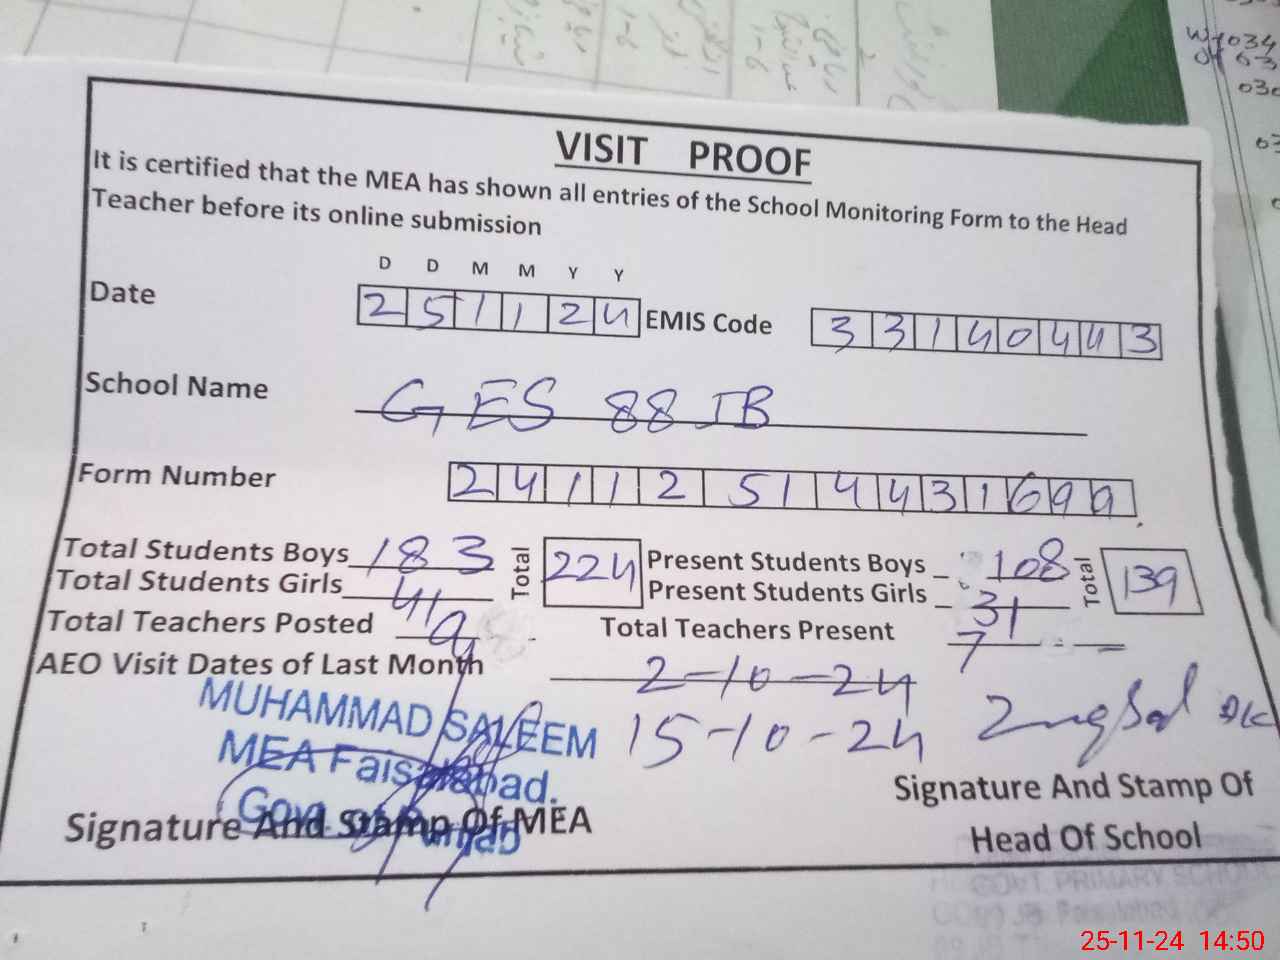 W 034
03
VISIT PROOF
It is certified that the MEA has shown all entries of the School Monitoring Form to the Head
Teacher before its online submission
D D M M Y Y
Date 2 5 1 1 2 4 EMIS Code 3 3 1 4 0 4 4 3
School Name GES 88 JB
Form Number 2 4 1 1 2 5 1 4 4 3 1 6 9 9
Total Students Boys 183 Total 224 Present Students Boys 108 Total 139
Total Students Girls 41 Present Students Girls 31
Total Teachers Posted 9 Total Teachers Present 7
AEO Visit Dates of Last Month 2-10-24
15-10-24
MUHAMMAD SALEEM
MEA Faisalabad.
Govt. of Punjab
Signature And Stamp Of MEA
Signature And Stamp Of
Head Of School
GOVT. PRIMARY SCHOOL
25-11-24 14:50